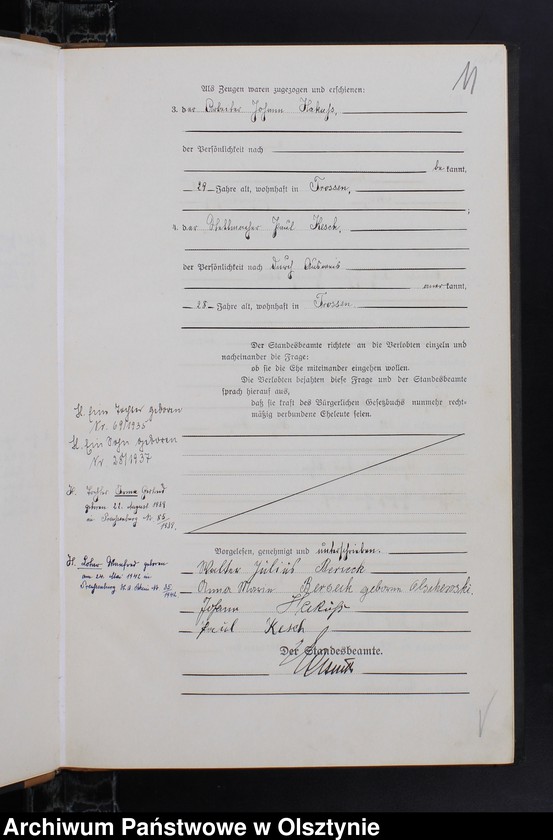 11
Als Zeugen waren zugezogen und erschienen:
3. der Arbeiter Johann Kekuß,
der Persönlichkeit nach
be kannt,
29 Jahre alt, wohnhaft in Trossen,
;
4. der Stellmacher Paul Kesch,
der Persönlichkeit nach durch Ausweis
aner kannt,
28 Jahre alt, wohnhaft in Trossen
Der Standesbeamte richtete an die Verlobten einzeln und
nacheinander die Frage:
ob sie die Ehe miteinander eingehen wollen.
Die Verlobten bejahten diese Frage und der Standesbeamte
sprach hierauf aus,
daß sie kraft des Bürgerlichen Gesetzbuchs nunmehr recht-
mäßig verbundene Eheleute seien.
Eine Tochter geboren
Nr. 69/1935
Ein Sohn geboren
Nr 28/1937
Tochter Gertrud
geboren 22. August 1938
in Nr 85/1938.
Vorgelesen, genehmigt und unterschrieben.
Lothar Manfred geboren
am 24. Mai 1942 in
Nr 35/1942
Walter Julius
Anna Maria geborene
Johann Kekuß
Paul Kesch
Der Standesbeamte.
Archiwum Państwowe w Olsztynie